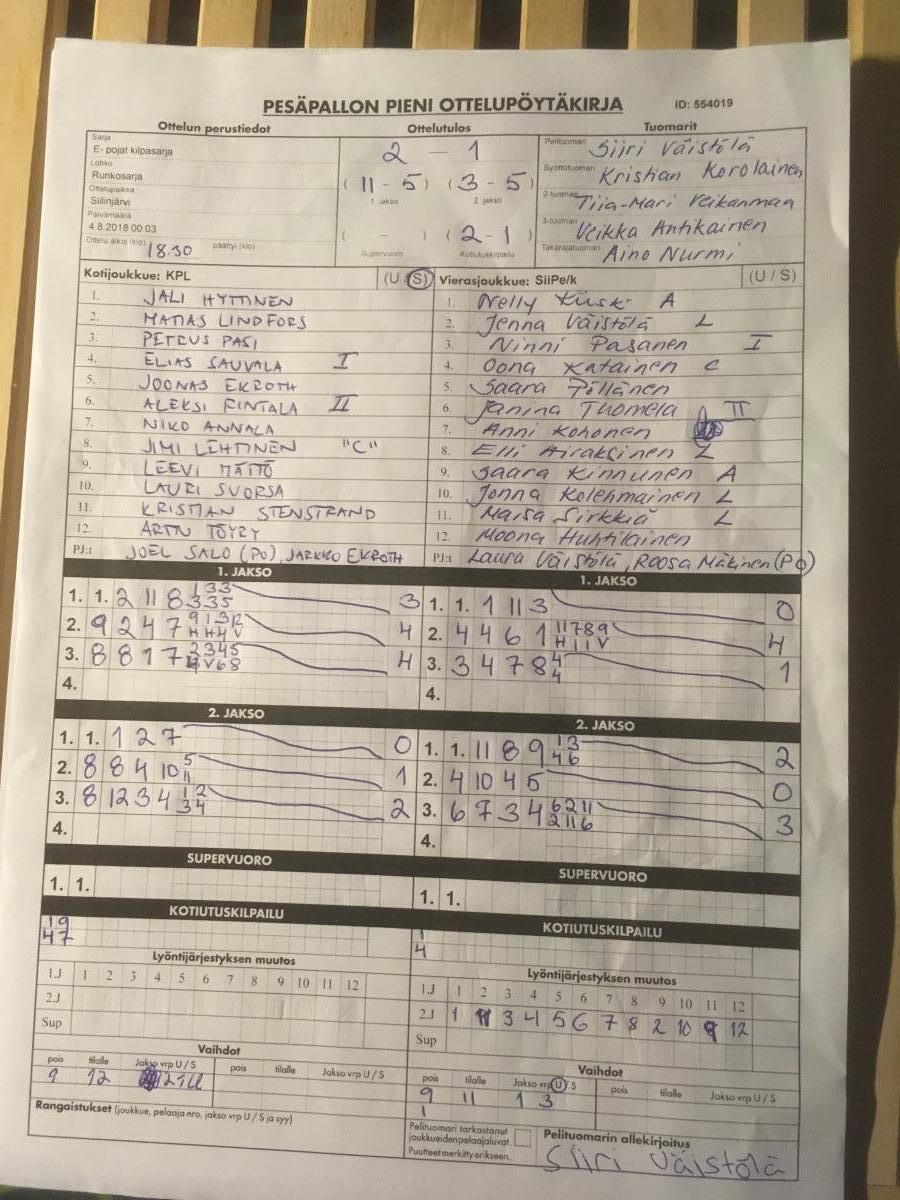 PESÄPALLON PIENI OTTELUPÖYTÄKIRJA ID: 554019
Ottelun perustiedot Ottelutulos Tuomarit
Sarja
E- pojat kilpasarja
Lohko
Runkosarja
Ottelupaikka
Siilinjärvi
Päivämäärä
4.8.2018 00:03
Ottelu alkoi (klo) 18.30 päättyi (klo)
2 - 1
( 11 - 5 ) ( 3 - 5 )
1. jakso 2. jakso
( - ) ( 2 - 1 )
Supervuoro Kotiutuskilpailu
Pelituomari Siiri Väistölä
Syöttötuomari Kristian Korolainen
2-tuomari Tiia-Mari Veikanmaa
3-tuomari Veikka Antikainen
Takarajatuomari Aino Nurmi
Kotijoukkue: KPL (U / S)
1. JALI HYTTINEN
2. MATIAS LINDFORS
3. PETRUS PASI
4. ELIAS SAUVALA I
5. JOONAS EKROTH
6. ALEKSI RINTALA II
7. NIKO ANNALA
8. JIMI LEHTINEN "C"
9. LEEVI MÄTTÖ
10. LAURI SUORSA
11. KRISTIAN STENSTRAND
12. ARTTU TÖYRY
PJ:t JOEL SALO (PO), JARKKO EKROTH
Vierasjoukkue: SiiPe/k (U / S)
1. Nelly A
2. Jenna Väistölä L
3. Ninni Pasanen I
4. Oona Katainen C
5. Saara Pöllänen
6. Janina Tuomela II
7. Anni Kohonen
8. Elli Hiraksinen L
9. Saara Kinnunen A
10. Jonna Kolehmainen L
11. Maisa Sirkkiä L
12. Moona Huhtikainen
PJ:t Laura Väistölä, Roosa Mäkinen (PO)
1. JAKSO
1. 1. 2 11 8 1 3 3 3
3 3 5
2. 9 2 4 7 9 1 3 12 4
H H 4 V
3. 8 8 1 7 2 3 4 5 4
V 6 8
4.
1. JAKSO
1. 1. 1 11 3 0
2. 4 4 6 1 11 7 8 9 4
H 1 1 V
3. 3 4 7 8 4 1
4
4.
2. JAKSO
1. 1. 1 2 7 0
2. 8 8 4 10 5 1
11
3. 8 12 3 4 1 2 2
3 4
4.
2. JAKSO
1. 1. 11 8 9 1 3 2
4 6
2. 4 10 4 5 0
3. 6 7 3 4 6 2 11 3
2 11 6
4.
SUPERVUORO
1. 1.
SUPERVUORO
1. 1.
KOTIUTUSKILPAILU
1 9
4 7
KOTIUTUSKILPAILU
1
4
Lyöntijärjestyksen muutos
1.J 1 2 3 4 5 6 7 8 9 10 11 12
2.J
Sup
Lyöntijärjestyksen muutos
1.J 1 2 3 4 5 6 7 8 9 10 11 12
2.J 1 11 3 4 5 6 7 8 2 10 9 12
Sup
Vaihdot
pois tilalle Jakso vrp U / S pois tilalle Jakso vrp U / S
9 12
Vaihdot
pois tilalle Jakso vrp U / S pois tilalle Jakso vrp U / S
9 11 1 3
1
Rangaistukset (joukkue, pelaaja nro, jakso vrp U / S ja syy)
Pelituomari tarkastanut
joukkueiden pelaajaluvat.
Puutteet merkitty erikseen.
Pelituomarin allekirjoitus
Siiri Väistölä